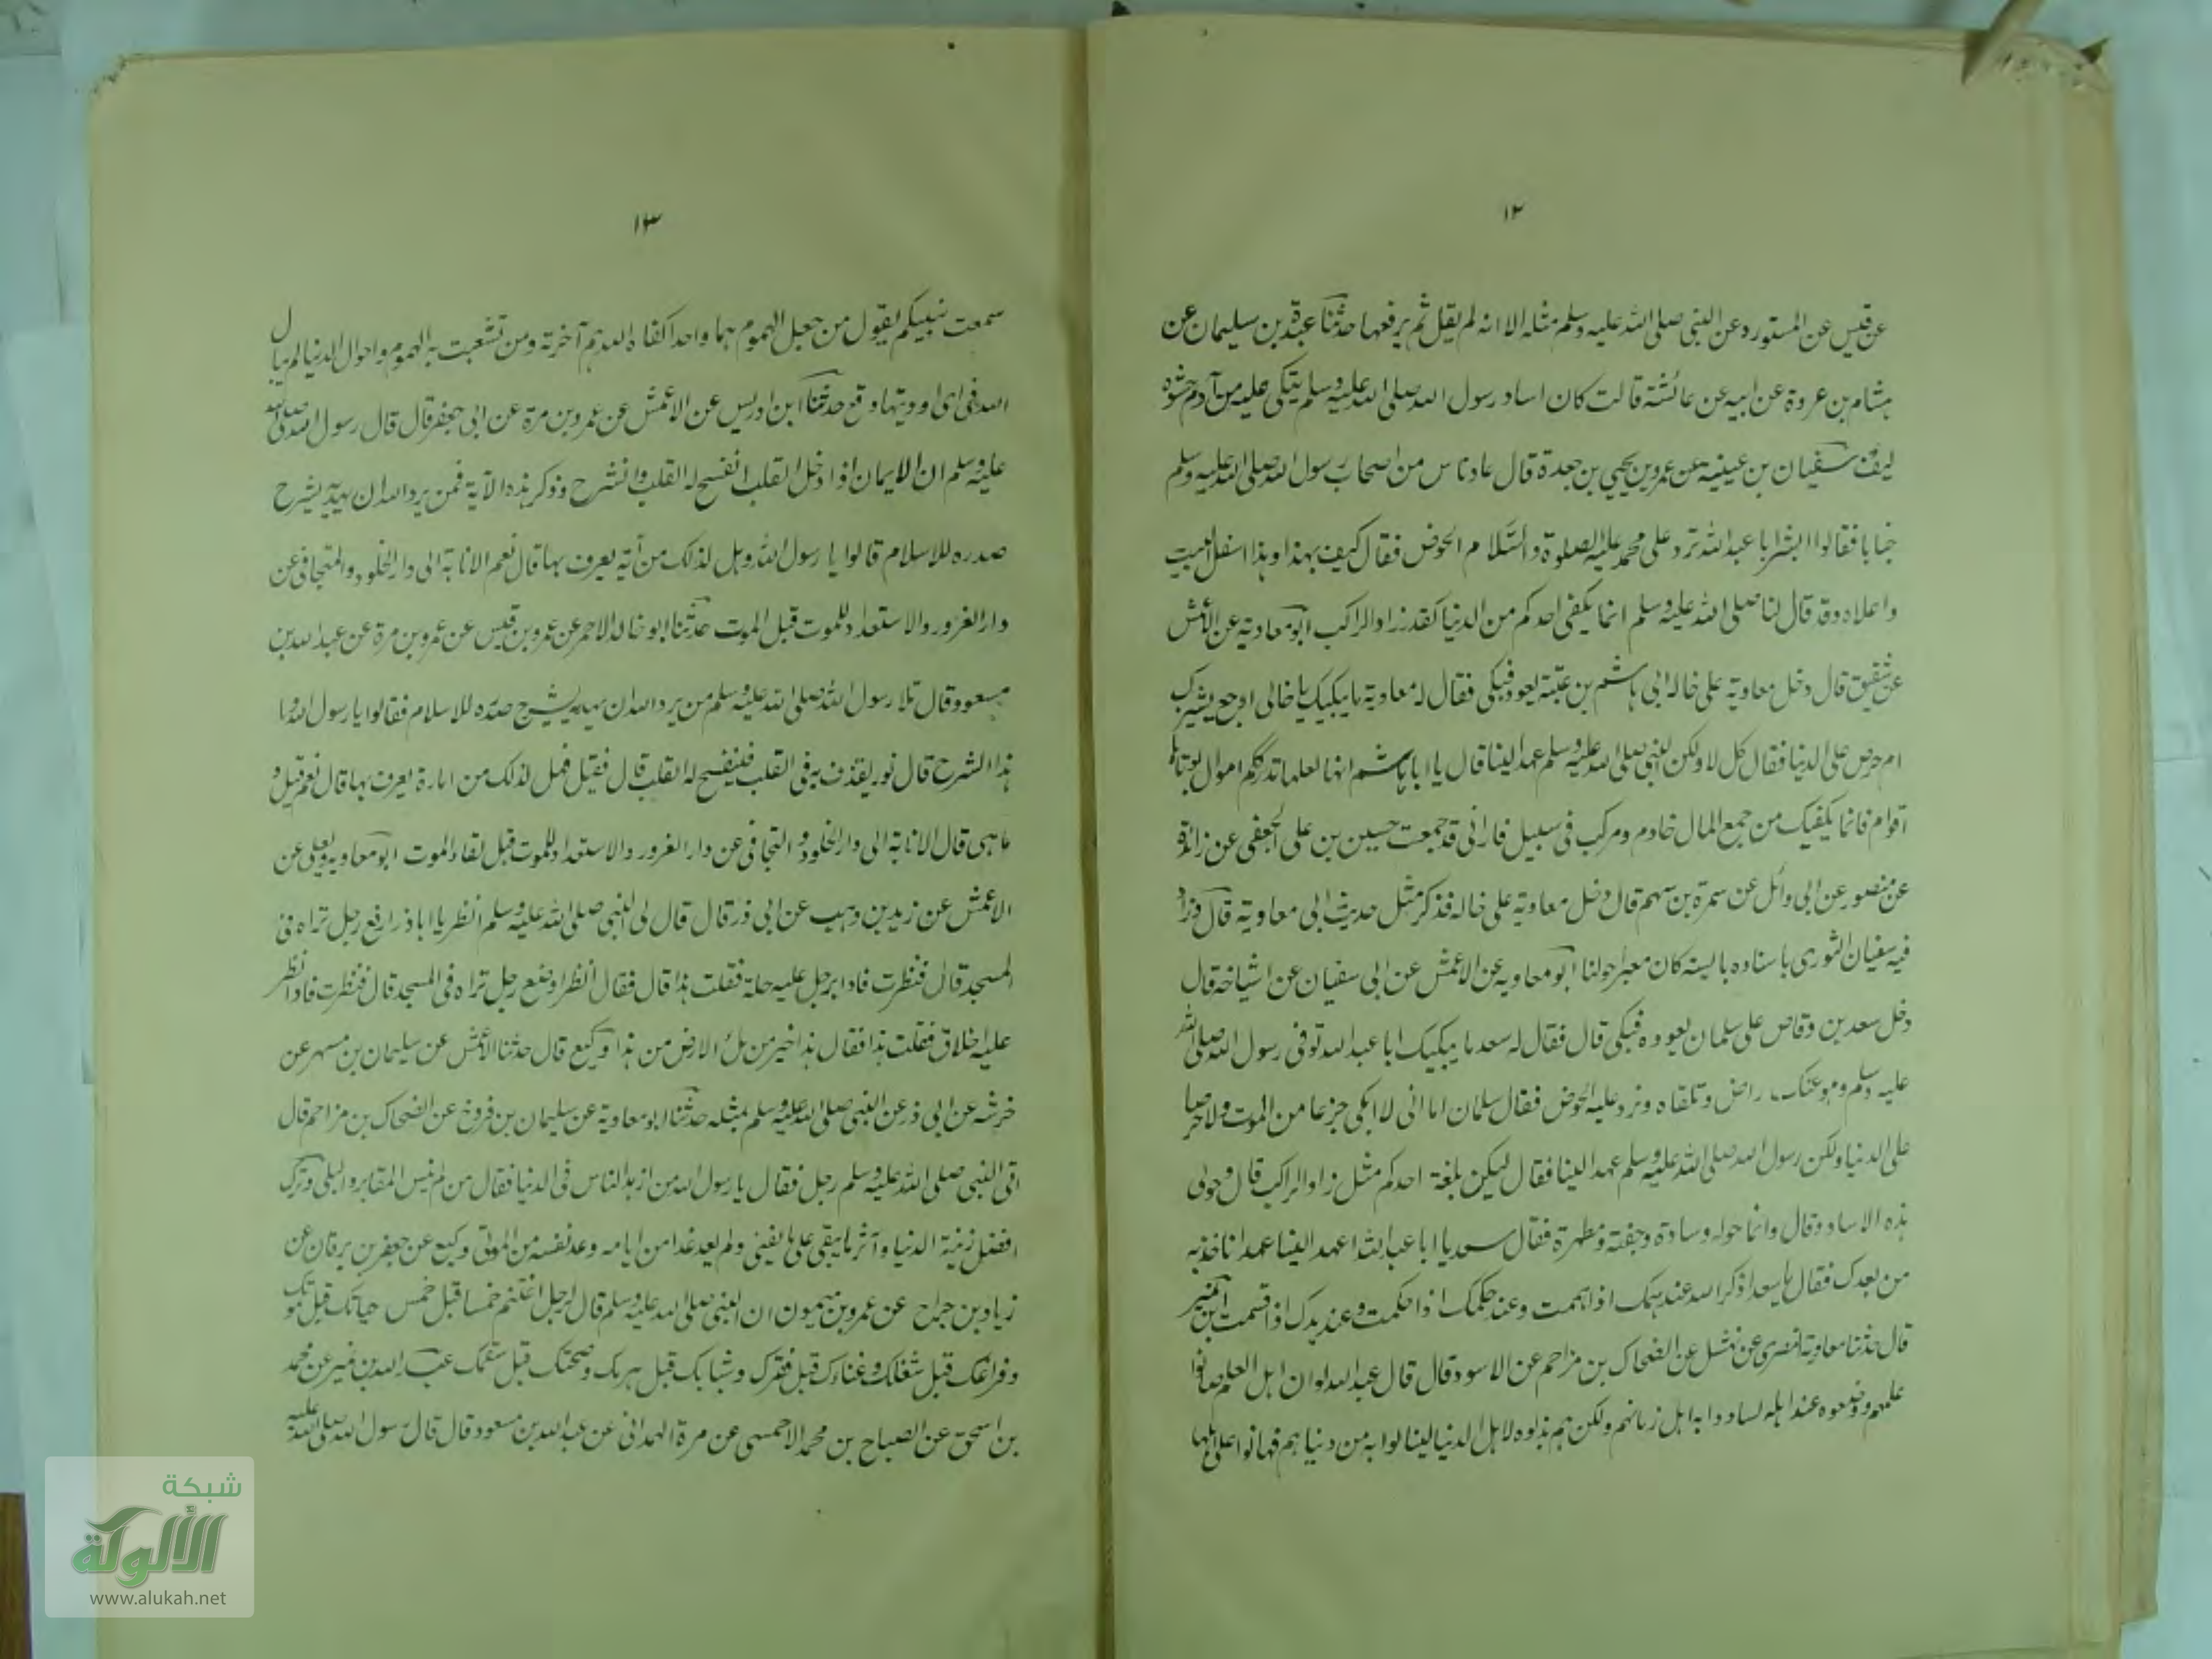 ١٢
عن قيس عن المستورد عن النبي صلى الله عليه وسلم مثله الا انه لم يقل ثم يرفعها حدثنا عبدة بن سليمان عن
هشام بن عروة عن ابيه عن عائشة قالت كان اساد رسول الله صلى الله عليه وسلم يتكى عليه من آدم حشوه
ليف سفيان بن عيينه عن عمرو بن يحيى بن جعدة قال عاد ناس من اصحاب رسول الله صلى الله عليه وسلم
خبابا فقالوا ابشر ابا عبد الله ترد على محمد عليه الصلوة والسلام الحوض فقال كيف بهذا وهذا اسفل البيت
واعلاه وقد قال لنا صلى الله عليه وسلم انما يكفى احدكم من الدنيا كقدر زاد الراكب ابو معاوية عن الاعمش
عن شقيق قال دخل معاوية على خاله ابى هاشم بن عتبة يعوده فبكى فقال له معاوية ما يبكيك يا خالى اوجع يشيزك
ام حرص على الدنيا فقال كل لا ولكن النبى صلى الله عليه وسلم عهد الينا قال يا ابا هاشم انها لعلها تدرككم اموال يوتاها
اقوام فانما يكفيك من جمع المال خادم ومركب فى سبيل فارانى قد جمعت حسين بن على الجعفى عن زائدة
عن منصور عن ابى وائل عن سمرة بن سهم قال دخل معاوية على خاله فذكر مثل حديث ابى معاوية قال وزاد
فيه سفيان الثورى باسناده يا ليته كان معبرا حولنا ابو معاويه عن الاعمش عن ابى سفيان عن اشياخه قال
دخل سعد بن وقاص على سلمان يعوده فبكى قال فقال له سعد ما يبكيك ابا عبد الله توفى رسول الله صلى الله
عليه وسلم وهو عنك راض وتلقاه وترد عليه الحوض فقال سلمان اما انى لا ابكى جزعا من الموت ولا حرصا
على الدنيا ولكن رسول الله صلى الله عليه وسلم عهد الينا فقال ليكن بلغة احدكم مثل زاد الراكب قال وحولى
هذه الاساود قال وانما حوله وسادة وجفنة ومطهرة فقال سعد يا ابا عبد الله اعهد الينا عهدا ناخذ به
من بعدك فقال يا سعد اذكر الله عند همك اذا هممت وعند حكمك اذا حكمت وعند يدك اذا قسمت ابن نمير
قال حدثنا معاوية النصرى عن نهشل عن الضحاك بن مزاحم عن الاسود قال قال عبد الله لو ان اهل العلم صانوا
علمهم ووضعوه عند اهله لسادوا به اهل زمانهم ولكن هم بذلوه لاهل الدنيا لينالوا به من دنياهم فهانوا على اهلها
١٣
سمعت نبيكم يقول من جعل الهموم هما واحدا كفاه الله هم آخرته ومن تشعبت به الهموم واحوال الدنيا لم يبال
الله فى اى اوديتها وقع حدثنا ابن ادريس عن الاعمش عن عمرو بن مرة عن ابى جعفر قال قال رسول الله صلى الله
عليه وسلم ان الايمان اذا دخل القلب انفسح له القلب وانشرح وذكر هذه الآية فمن يرد الله ان يهديه يشرح
صدره للاسلام قالوا يا رسول الله وهل لذلك من آية يعرف بها قال نعم الانابة الى دار الخلود والتجافى عن
دار الغرور والاستعداد للموت قبل الموت حدثنا ابو خالد الاحمر عن عمرو بن قيس عن عمرو بن مرة عن عبد الله بن
مسعود قال تلا رسول الله صلى الله عليه وسلم من يرد الله ان يهديه يشرح صدره للاسلام فقالوا يا رسول الله وما
هذا الشرح قال نور يقذف به فى القلب فينفسح له القلب قال فقيل فهل لذلك من امارة يعرف بها قال نعم قيل و
ما هى قال الانابة الى دار الخلود و التجافى عن دار الغرور والاستعداد للموت قبل لقاء الموت ابو معاويه ويعلى عن
الاعمش عن زيد بن وهب عن ابى ذر قال قال لى النبى صلى الله عليه وسلم انظر يا اباذر ارفع رجل تراه فى
المسجد قال فنظرت فاذا برجل عليه حلة فقلت هذا قال فقال انظر اوضع رجل تراه فى المسجد قال فنظرت فاذا نظر
عليه اخلاق فقلت هذا فقال هذا خير من ملء الارض من هذا وكيع قال حدثنا الاعمش عن سليمان بن مسهر عن
خرشه عن ابى ذر عن النبى صلى الله عليه وسلم بمثله حدثنا ابو معاوية عن سليمان بن فروخ عن الضحاك بن مزاحم قال
اتى النبى صلى الله عليه وسلم رجل فقال يا رسول الله من ازهد الناس فى الدنيا فقال من لم ينس المقابر والبلى وترك
افضل زينة الدنيا وآثر ما يبقى على ما يفنى ولم يعد غدا من ايامه وعد نفسه من الموتى وكيع عن جعفر بن برقان عن
زياد بن جراح عن عمرو بن ميمون ان النبى صلى الله عليه وسلم قال لرجل اغتنم خمسا قبل خمس حياتك قبل موتك
وفراغك قبل شغلك وغناءك قبل فقرك وشبابك قبل هرمك وصحتك قبل سقمك عبد الله بن نمير عن محمد
بن اسحق عن الصباح بن محمد الاحمسى عن مرة الهمدانى عن عبد الله بن مسعود قال قال رسول الله صلى الله عليه
شبكة
الألوكة
www.alukah.net